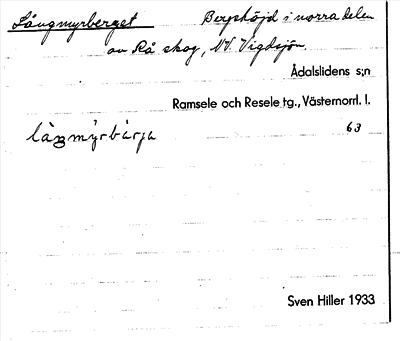 Långmyrberget Bergshöjd i norra delen
av Rå skog, NV. Vigdsjön.
Ådalslidens s;n
Ramsele och Resele tg., Västernorrl. l.
63
Sven Hiller 1933